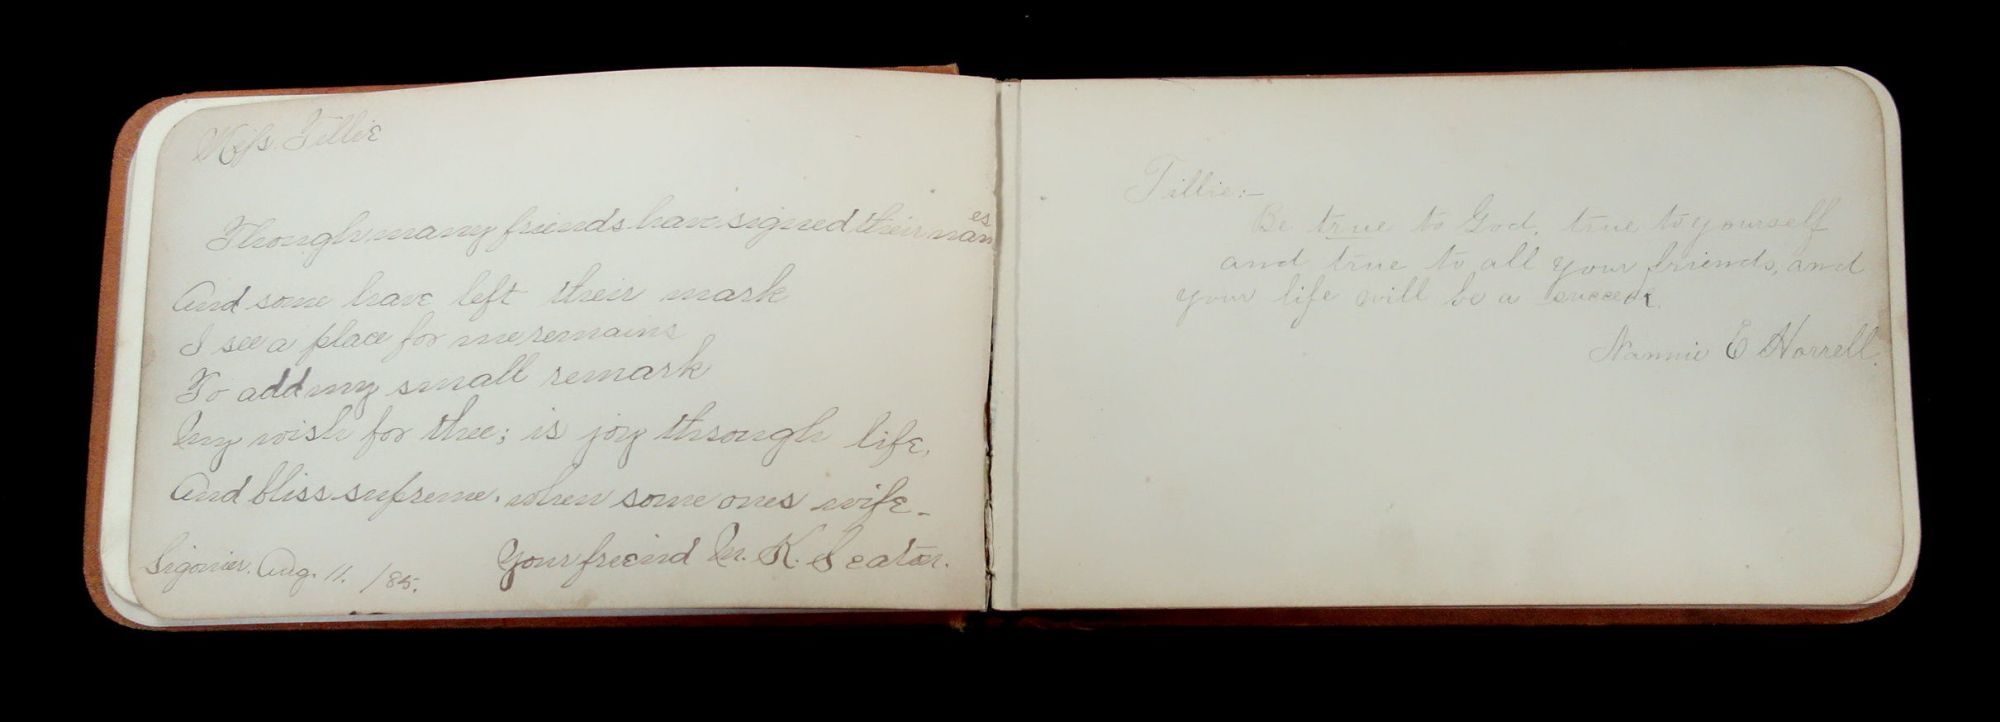 Miss. Tillie
Though many friends have signed their names
And some have left their mark
I see a place for me remains
To add my small remark
My wish for thee; is joy through life,
And bliss supreme. when some ones wife-
Your freind M. K. Seator.
Ligonier. Aug. 11. /85.
Tillie:-
Be true to God, true to yourself
and true to all your friends, and
your life will be a success.
Nannie E Horrell.